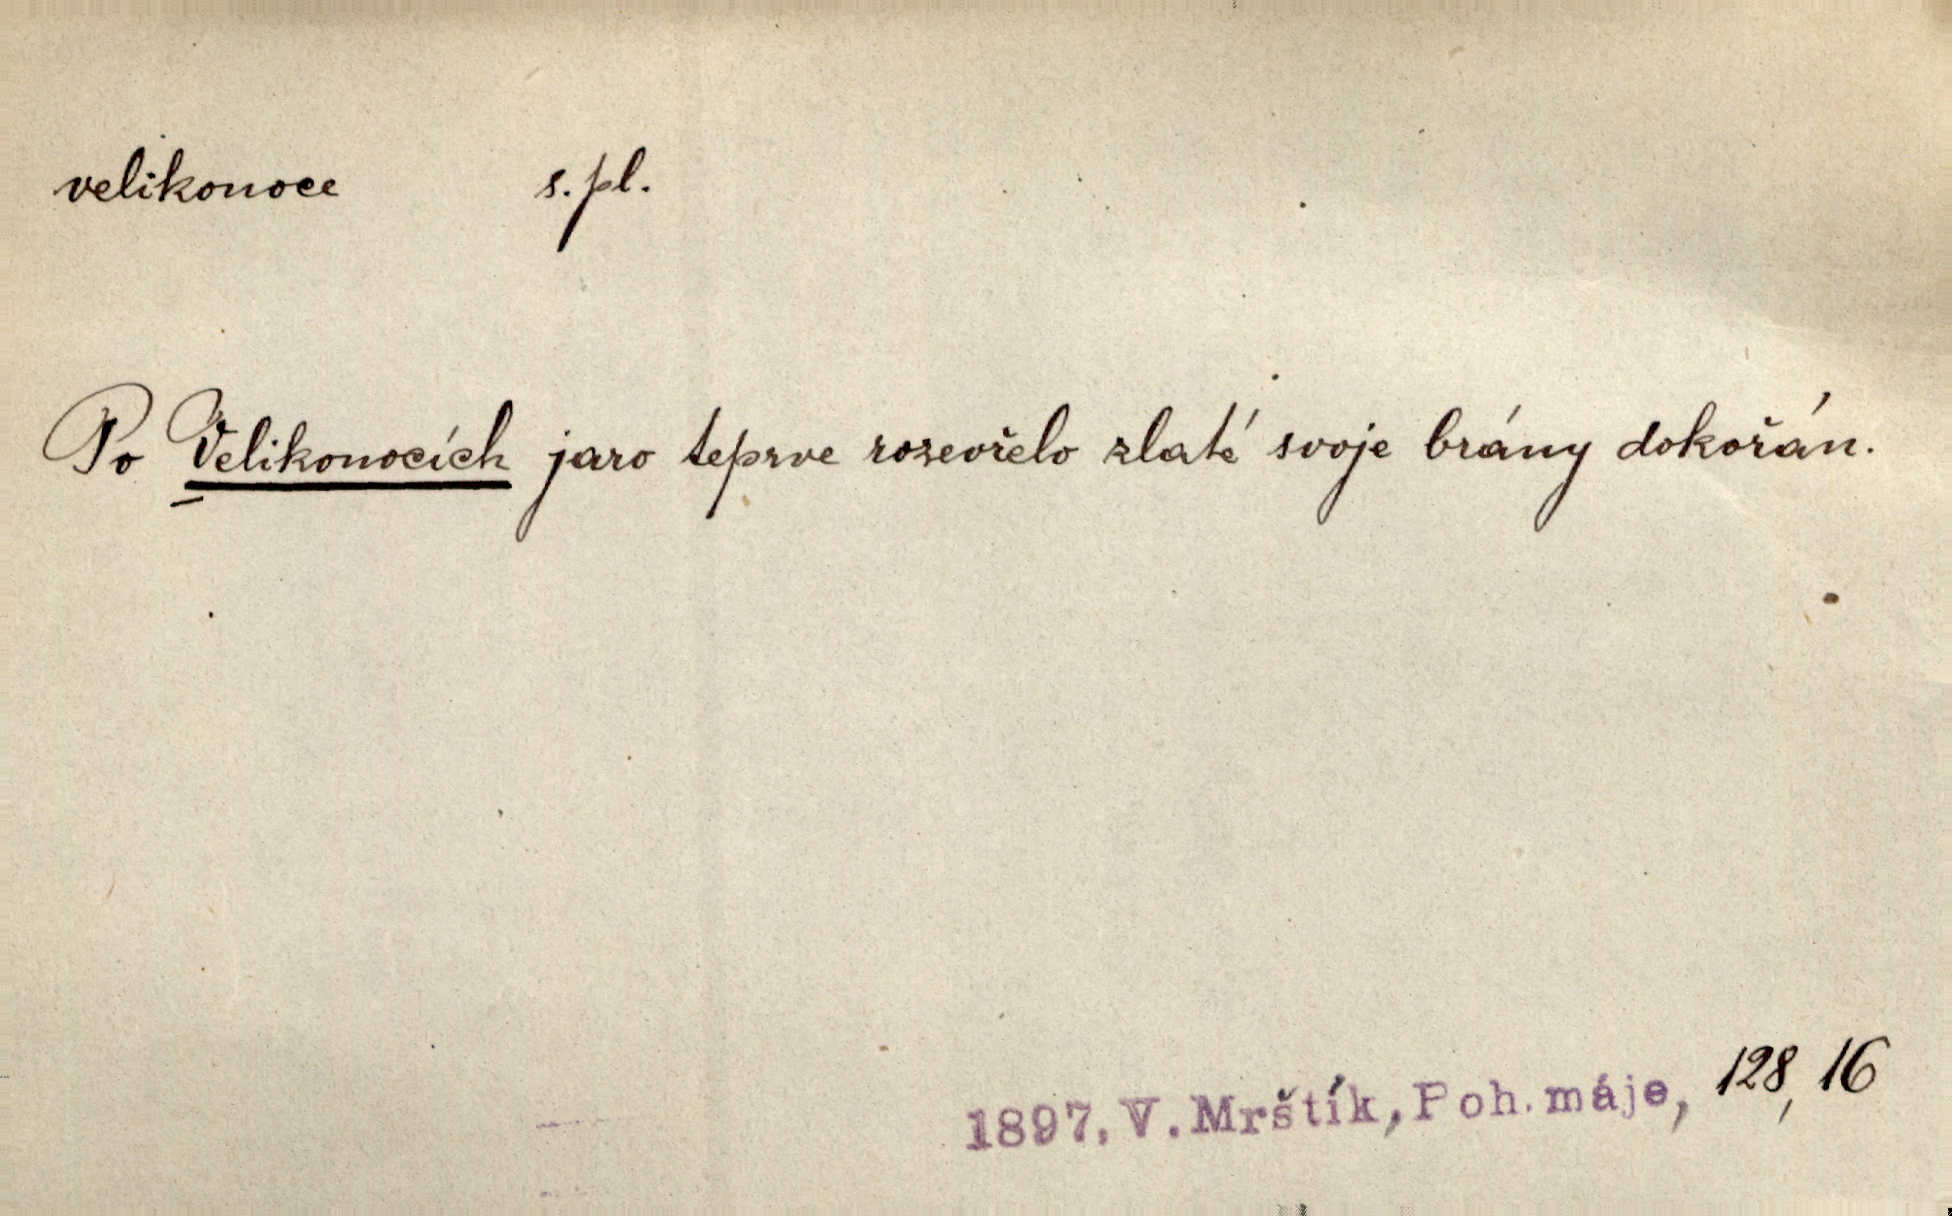 velikonoce s. pl.
Po Velikonocích jaro teprve rozevřelo zlaté svoje brány dokořán.
1897, V. Mrštík, Poh. máje, 128, 16